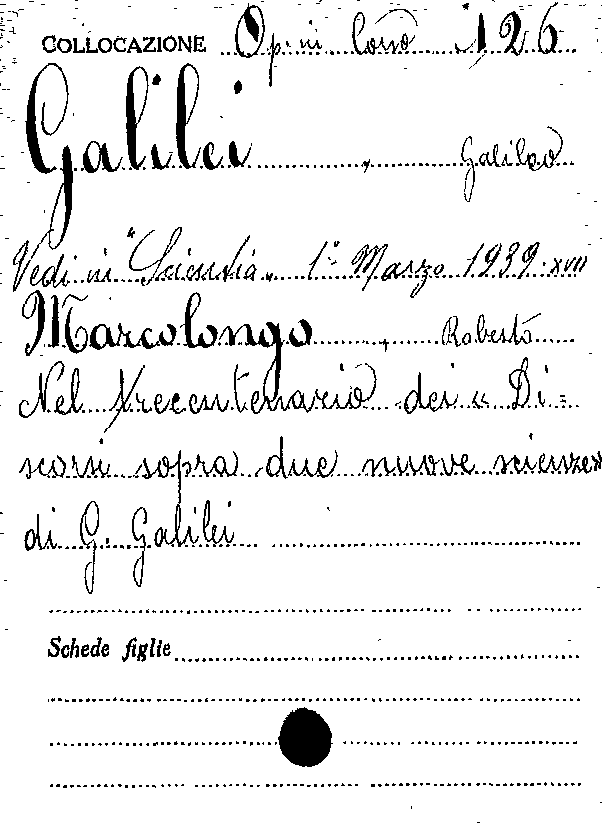 COLLOCAZIONE Op. in Corso 126
Galilei, Galileo
Vedi in "Scientia" 1° Marzo 1939-XVII
Marcolongo, Roberto
Nel trecentenario dei « Di=
scorsi sopra due nuove scienze»
di G. Galilei
Schede figlie